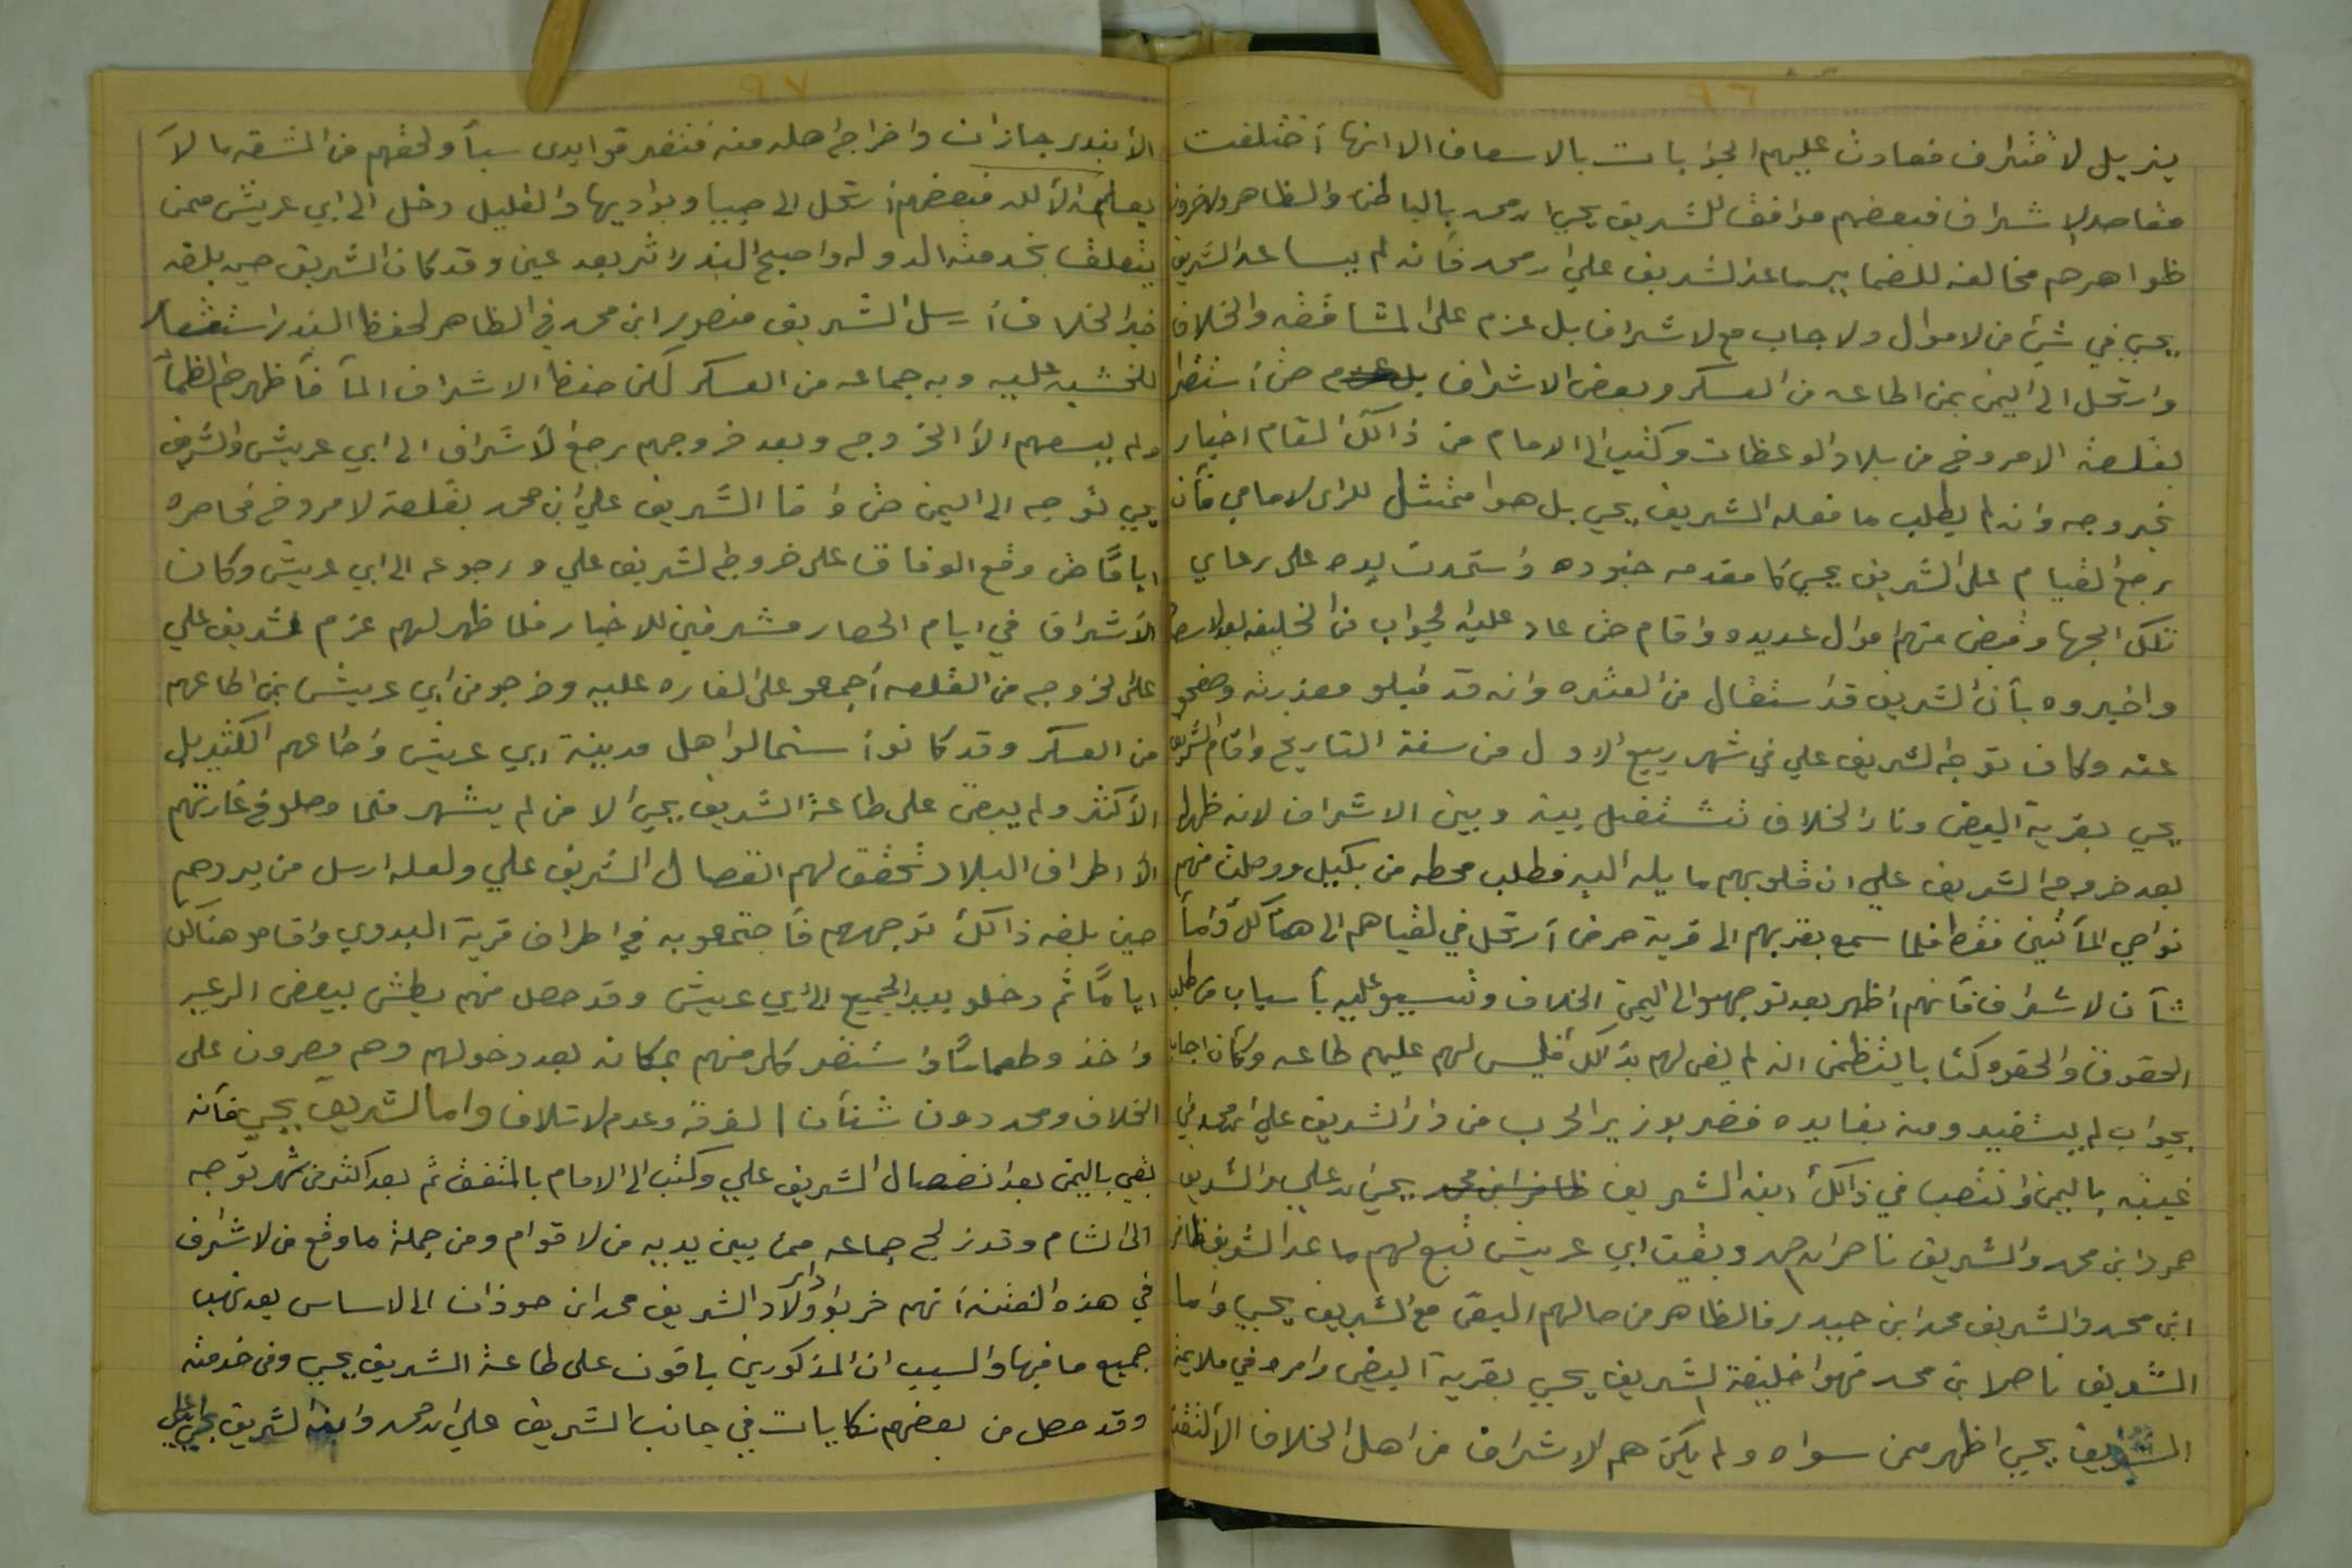 ٩٦
ينزيل لا شراف فعادت عليهم الجوابات بالاسعاف الا انها أختلفت
مقاصد الاشراف فبعضهم موافق للشريف يحيي ابن محمد بالباطن والظاهر والاخرون
ظواهرهم مخالفه للضماير ماعد الشريف علي ابن محمد فأنه لم يساعد الشريف
يحيي في شيً من لاموال ولا جاب مع لاشراف بل عزم على المشاققه والخلاف
وارتحل الى اليمن بمن اطاعه من العسكر وبعض الاشراف حتى أستقر
بقلعة الامروخ من بلاد الوعظات وكتب الى الامام من ذالك المقام اخبار
بخروجه وانه لم يطلب ما فعله الشريف يحيي بل هوا ممتثل للراى لامامي فأن
رجح القيام على الشريف يحيي كا مقدمه جنوده وأستمدت يده على رعاي
تلك الجها وقبض منهم اموال عديده واقام حتى عاد عليه الجواب من الخليفه
واخبروه بأن الشريف قد استقال من العثره وانه قد قبلو معذرته وصفحو
عنه وكان توجه الشريف علي في شهر ربيع الاول من سنة التاريخ واقام الشريف
يحيي بقرية البيض ونار الخلاف تشتعل بينه وبين الاشراف لانه ظهر له
بعد خروج الشريف علي ان قلوبهم مايله اليه فطلب محطه من بكيل ووصلت منهم
نواحي المأتين فقط فلما سمع بقربهم الى قرية حرض أرتحل في لقياهم الى هنالك وأما
شأن لاشراف فأنهم اظهر بعد توجهه الى اليمن الخلاف وتسببو عليه بأسباب من طلب
الحقوق والحقوه كتابا يتضمن انه لم يفي لهم بذالك فليس لهم عليهم طاعه وكان اجاب
بجواب لم يستفيدو منه بفايده فضربو زير الحرب من دار الشريف علي ابن محمد في
غيبته باليمن وانتصب في ذالك ابنه الشريف يحيى ابن علي والشريف
حمود ابن محمد والشريف ناصر ابن محمد وبقيت ابي عريش تبع لهم ماعد الشريف ظافر
ابن محمد والشريف محمد ابن حيدر فالظاهر من حالهم البقى مع الشريف يحيي واما
الشريف ناصر ابن محمد فهوا خليفة الشريف يحيي بقرية البيض وامره في ملايمة
الشريف يحيي اظهر ممن سواه ولم يكن هم الاشراف من اهل الخلاف الا
٩٧
الأ بندر جازان واخراج اهله منه فتفرقو ايدى سبأ ولحقهم من المشقه ما لاَ
يعلمه الا الله فبعضهم أرتحل الى صبيا وبواديها والقليل دخل الى ابي عريش ممن
يتعلق بخدمة الدوله واصبح البندر اثر بعد عين وقد كان الشريف حين بلغه
خبر الخلاف أرسل الشريف منصور ابن محمد في الظاهر لحفظ البندر
للخشيه عليه وبه جماعه من العسكر لكن حفظ الاشراف المآ فأظهرهم الظمأ
ولم يسعهم الأ الخروج وبعد خروجهم رجع لأشراف الى ابي عريش والشريف
يحيي توجه الى اليمن حتى وافا الشريف علي ابن محمد بقلعة لامروخ فحاصره
اياماً حتى وقع الوفاق على خروج الشريف علي ورجوعه الى ابي عريش وكان
الأشراف في ايام الحصار مشرفين للاخبار فلما ظهر لهم عزم الشريف علي
على الخروجه من القلعه أجمعو على الغاره عليه وخرجو من ابي عريش بمن اطاعهم
من العسكر وقد كانو أستمالوا اهل مدينة ابي عريش وأطاعهم الكثير بل
الأكثر ولم يبقى على طاعة الشريف يحيي الا من لم يشهر فلما وصلو في غارتهم
الى اطراف البلاد تحقق لهم انفصال الشريف علي ولعله ارسل من يردهم
حين بلغه ذالك توجههم فأجتمعو به في اطراف قرية البدوي واقامو هنالك
اياماً ثم دخلو بعد الجميع الى ابي عريش وقد حصل منهم بطش ببعض الرعيه
واخذ وطعمات واستقر كل منهم بمكانه بعد دخولهم وهم مصرون على
الخلاف ومحددون شنأن الفرقه وعدم لاتلاف واما الشريف يحيي فأنه
بقي باليمن بعد انفصال الشريف علي وكتب الى الامام بالمتفق ثم بعد اكثر من شهر توجه
الى الشام وقد نزلح جماعه ممن بين يديه من لاقوام ومن جملة ما وقع من لاشراف
في هذه الفتنه أنهم خربوا دار اولاد الشريف محمد ابن حوذان الى لاساس بعد نهب
جميع ما فيها والسبب ان المذكورين باقون على طاعة الشريف يحيي وفي خدمته
وقد حصل من بعضهم نكايات في جانب الشريف علي ابن محمد وابنه الشريف يحيى ابن علي